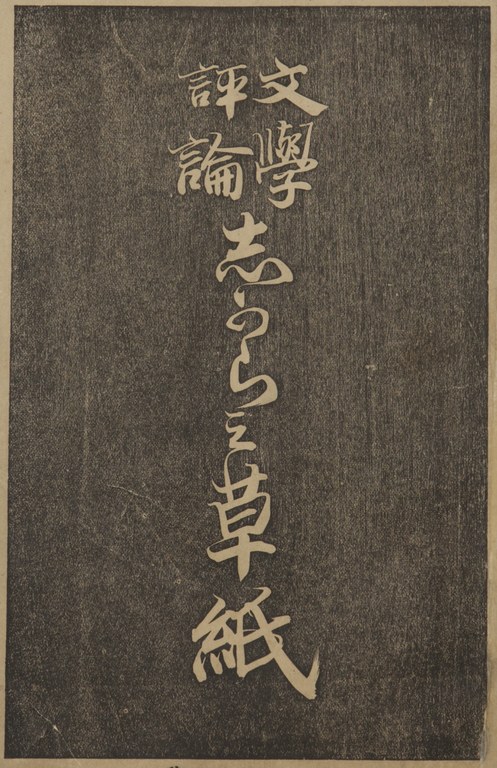 文學
評論
志からミ草紙